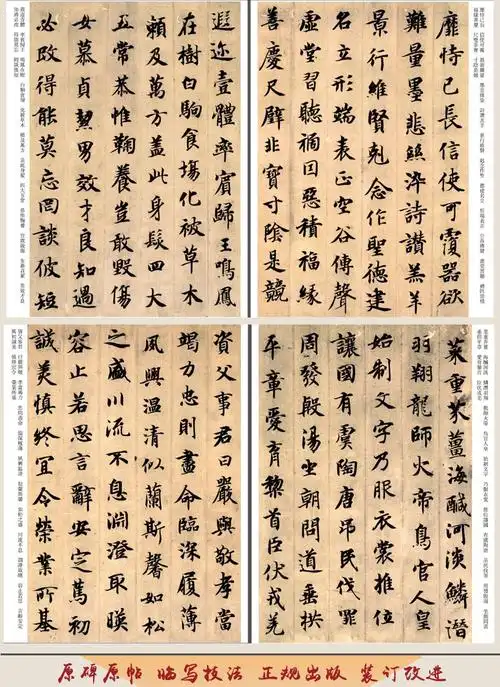 靡恃己長信使可覆器欲
難量墨悲絲染詩讚羔羊
景行維賢剋念作聖德建
名立形端表正空谷傳聲
虛堂習聽禍因惡積福緣
善慶尺璧非寶寸陰是競
遐迩壹體率賓歸王鳴鳳
在樹白駒食場化被草木
賴及萬方蓋此身髮四大
五常恭惟鞠養豈敢毀傷
女慕貞絜男效才良知過
必改得能莫忘罔談彼短
菜重芥薑海鹹河淡鱗潛
羽翔龍師火帝鳥官人皇
始制文字乃服衣裳推位
讓國有虞陶唐吊民伐罪
周發殷湯坐朝問道垂拱
平章愛育黎首臣伏戎羌
資父事君曰嚴與敬孝當
竭力忠則盡命臨深履薄
夙興温凊似蘭斯馨如松
之盛川流不息淵澄取暎
容止若思言辭安定篤初
誠美慎終宜令榮業所基
原碑原帖 臨写技法 正規出版 裝訂改進